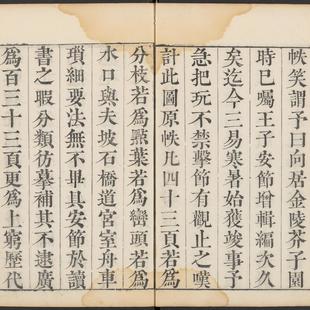 帙笑謂予曰向居金陵芥子園
時已囑王子安節增輯編次久
矣迄今三易寒暑始獲竣事予
急把玩不禁擊節有觀止之嘆
計此圖原帙凡四十三頁若爲
分枝若爲㸃葉若爲巒頭若爲
水口與夫坡石橋道宮室舟車
瑣細要法無不畢具安節於讀
書之暇分類彷摹補其不逮廣
爲百三十三頁更爲上窮歷代